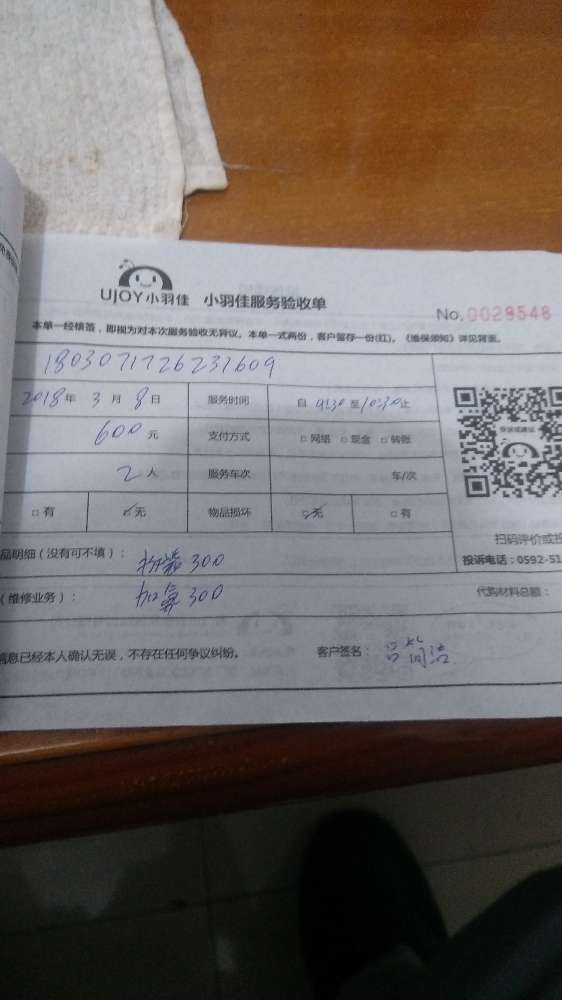 UJOY小羽佳 小羽佳服务验收单
No. 0028548
本单一经核签，即视为对本次服务验收无异议。本单一式两份，客户留存一份(红)。《维保须知》详见背面。
1803071726231609
2018年 3月 8日 服务时间 自 9:30 至 10:30 止
600元 支付方式 □网络 □现金 □转账
2人 服务车次 车/次
□有 ☑无 物品损坏 ☑无 □有
扫码评价或投
品明细（没有可不填）： 拆装300
投诉电话：0592-51
（维修业务）： 加氟300 代购材料总额：
信息已经本人确认无误，不存在任何争议纠纷。 客户签名：